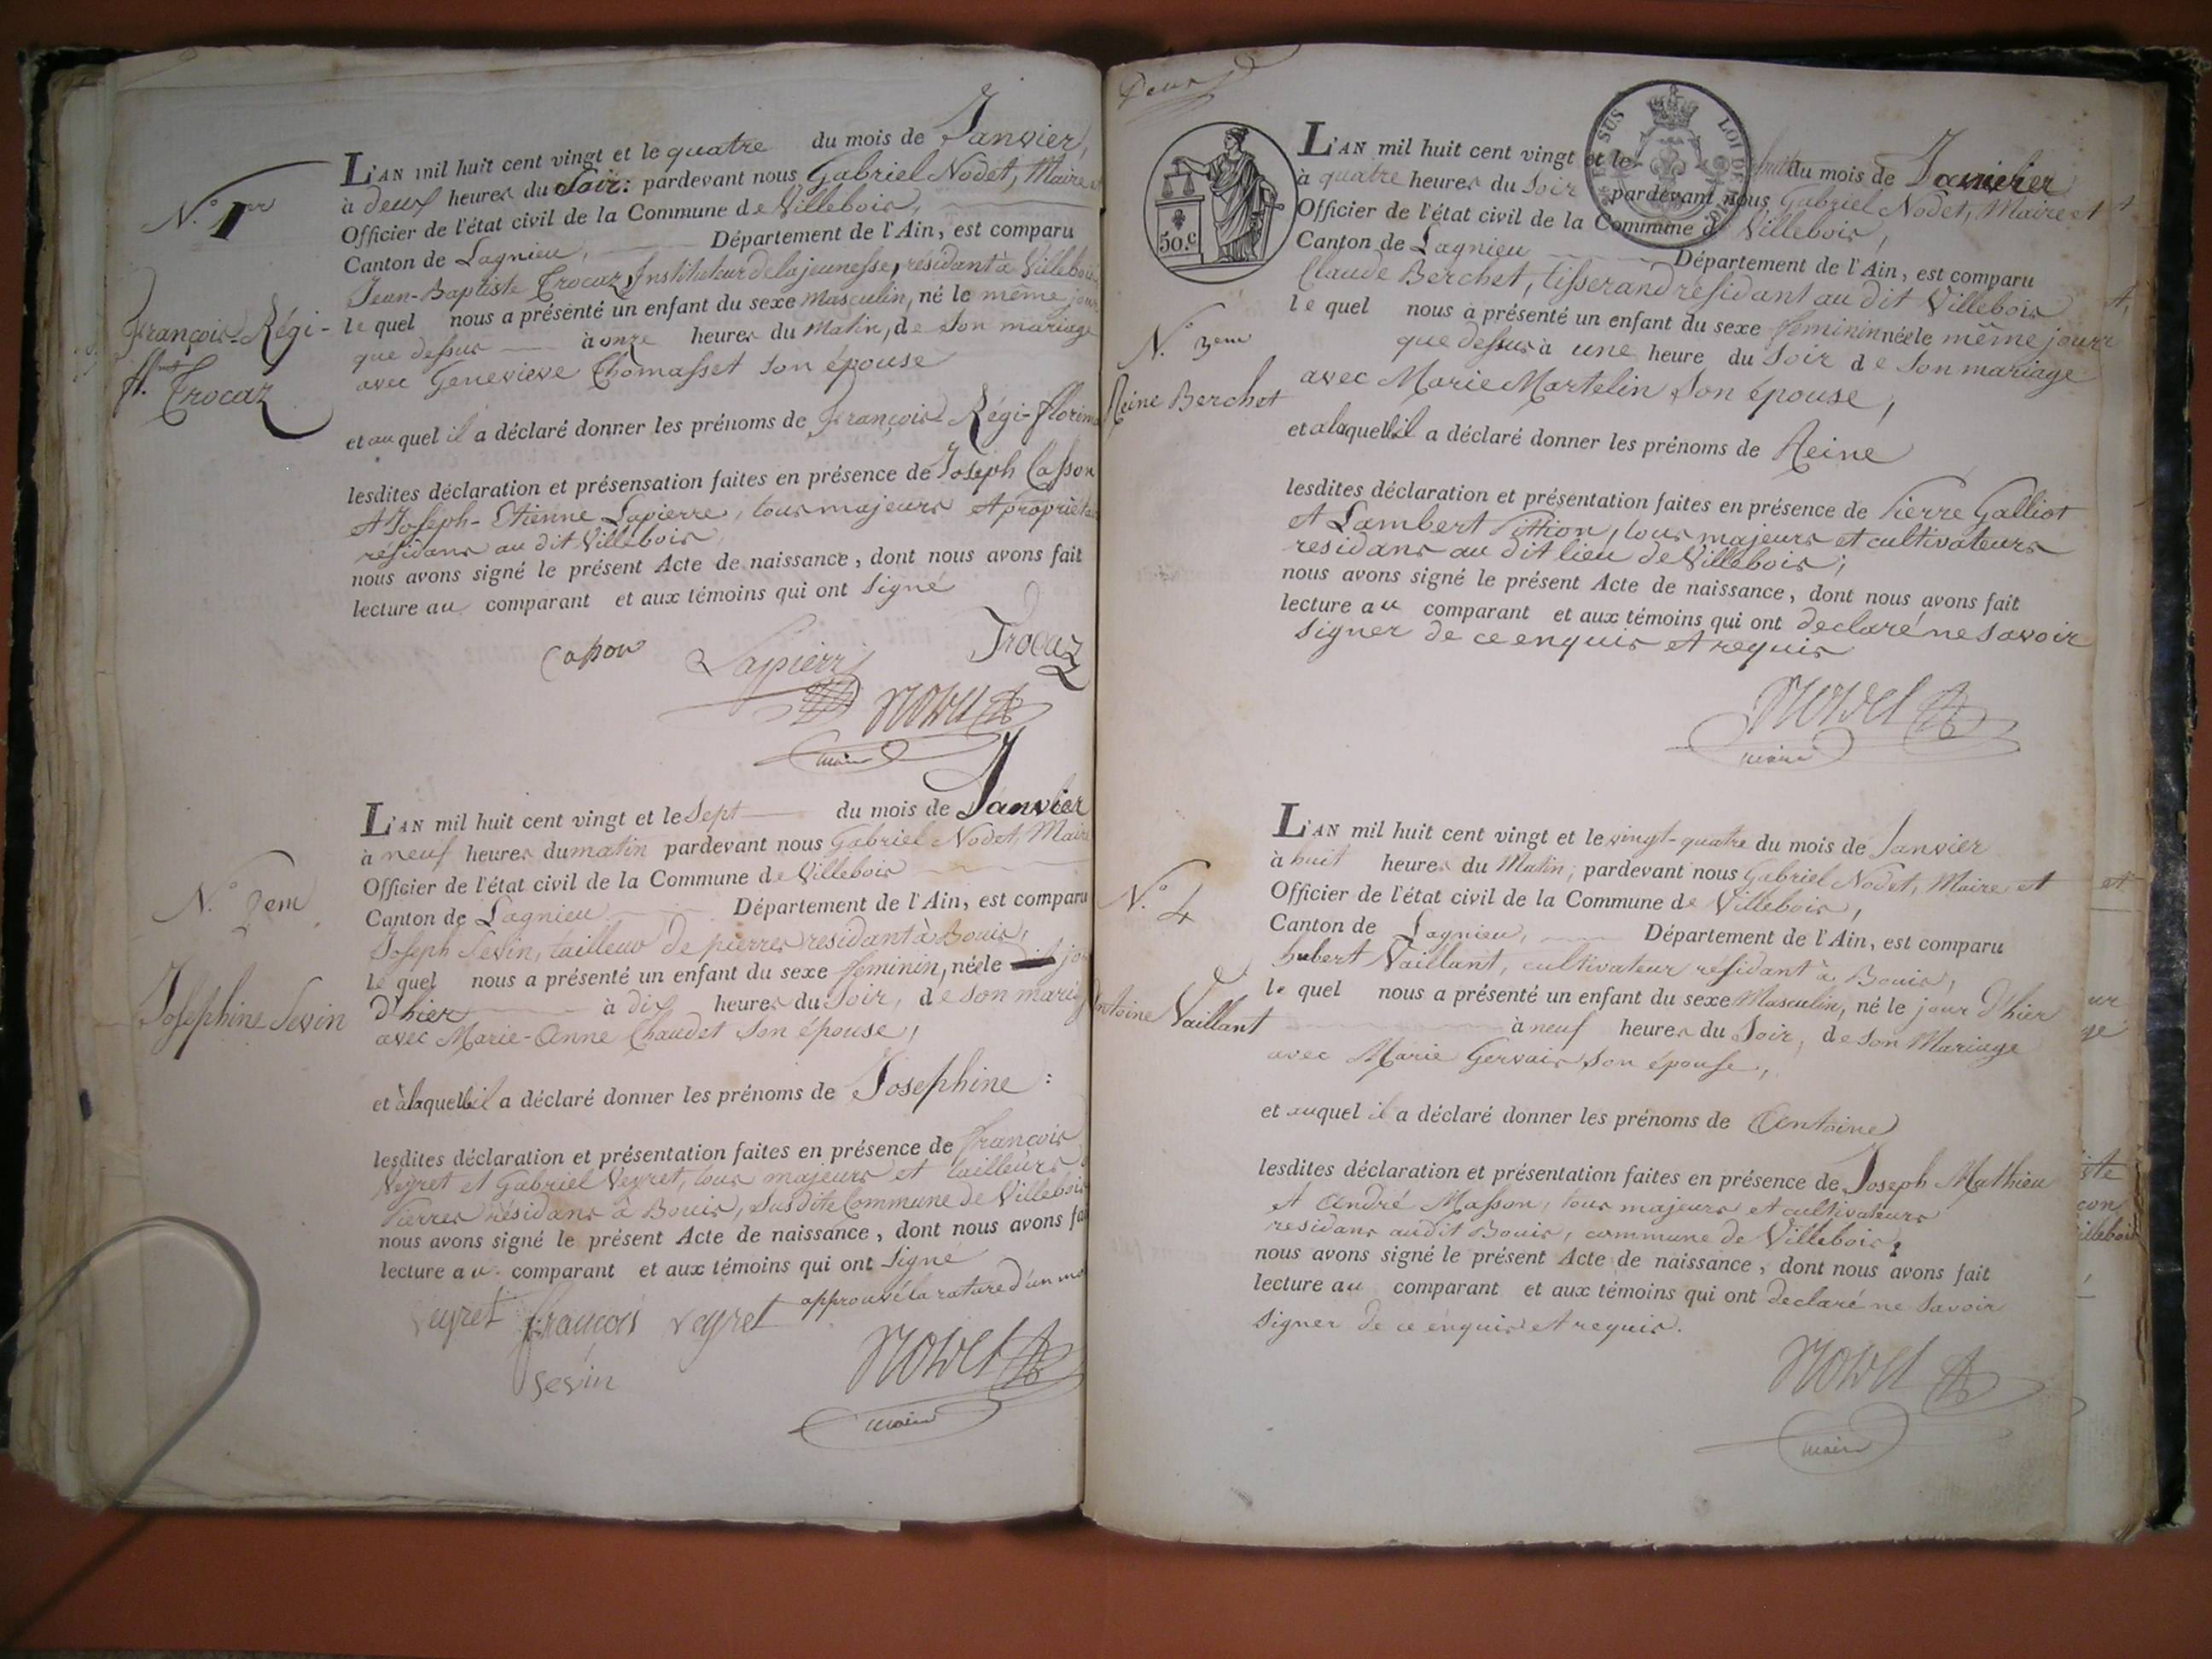 N.o 1er
François-Régi-
ff.t Trocaz
L'AN mil huit cent vingt et le quatre du mois de Janvier,
à deux heures du Soir: pardevant nous Gabriel Nodet, Maire et
Officier de l'état civil de la Commune de Villebois,
Canton de Lagnieu, Département de l'Ain, est comparu
Jean-Baptiste Trocaz, Instituteur de la jeunesse, résidant à Villebois
le quel nous a présenté un enfant du sexe Masculin, né le même jour
que dessus à onze heures du Matin, de son mariage
avec Genevieve Thomasset son épouse
et au quel il a déclaré donner les prénoms de François Régi-florim
lesdites déclaration et présensation faites en présence de Joseph Casson
et Joseph-Etienne Lapierre, tous majeurs et propriét
résidans au dit Villebois
nous avons signé le présent Acte de naissance, dont nous avons fait
lecture au comparant et aux témoins qui ont signé
Casson Lapierre Trocaz
Nodet
maire
N.o 2em
Josephine Sevin
L'AN mil huit cent vingt et le Sept du mois de Janvier
à neuf heures du matin pardevant nous Gabriel Nodet, Maire
Officier de l'état civil de la Commune de Villebois
Canton de Lagnieu Département de l'Ain, est comparu
Joseph Sevin, tailleur de pierres residant à Bouis,
Le quel nous a présenté un enfant du sexe feminin, née le jo
d'hier à dix heures du Soir, de son mariag
avec Marie-Anne Chaudet son épouse,
et à laquelle il a déclaré donner les prénoms de Josephine:
lesdites déclaration et présentation faites en présence de françois
Veyret et Gabriel Veyret, tous majeurs et tailleurs
Pierres résidans à Bouis, susdite Commune de Villebois
nous avons signé le présent Acte de naissance, dont nous avons fa
lecture au comparant et aux témoins qui ont Signé
approuvé la rature d'un mo
Veyret françois veyret
Sevin
Nodet
maire
Deux
50.c
SUS LOI DE
N.o 3em
Reine Berchet
L'AN mil huit cent vingt et le huit du mois de Janvier
à quatre heures du Soir pardevant nous Gabriel Nodet, Maire et
Officier de l'état civil de la Commune de Villebois,
Canton de Lagnieu Département de l'Ain, est comparu
Claude Berchet, tisserand residant au dit Villebois
le quel nous a présenté un enfant du sexe feminin née le même jour
que dessus à une heure du Soir de son mariage
avec Marie Martelin son épouse,
et a laquelle il a déclaré donner les prénoms de Reine
lesdites déclaration et présentation faites en présence de Pierre Galliot
et Lambert Pittion, tous majeurs et cultivateurs
residans au dit lieu de Villebois;
nous avons signé le présent Acte de naissance, dont nous avons fait
lecture au comparant et aux témoins qui ont declaré ne savoir
signer de ce enquis et requis
Nodet
maire
N.o 4
Antoine Vaillant
L'AN mil huit cent vingt et le vingt-quatre du mois de Janvier
à huit heures du Matin, pardevant nous Gabriel Nodet, Maire et
Officier de l'état civil de la Commune de Villebois,
Canton de Lagnieu, Département de l'Ain, est comparu
hubert Vaillant, cultivateur résidant à Bouis,
le quel nous a présenté un enfant du sexe Masculin, né le jour d'hier
à neuf heures du Soir, de son Mariage
avec Marie Gervais son épouse,
et auquel il a déclaré donner les prénoms de Antoine
lesdites déclaration et présentation faites en présence de Joseph Mathieu
et André Masson, tous majeurs et cultivateurs
residans audit Bouis, commune de Villebois;
nous avons signé le présent Acte de naissance, dont nous avons fait
lecture au comparant et aux témoins qui ont declaré ne savoir
signer de ce enquis et requis.
Nodet
maire